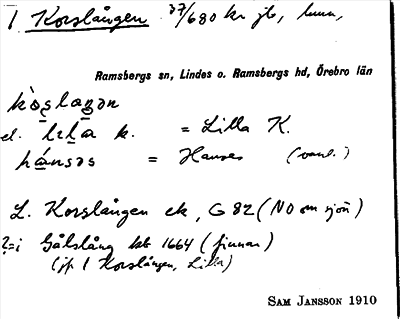 1 Korslången 37/680 kr jb,
Ramsbergs sn, Lindes o. Ramsbergs hd, Örebro län
el. k. = Lilla K.
hánsəs = Hanses (vanl.)
L. Korslången ek, G 82 (NO om sjön)
?=i Gålslång kb 1664 (finnar)
(jf 1 Korslången, Lilla)
SAM JANSSON 1910